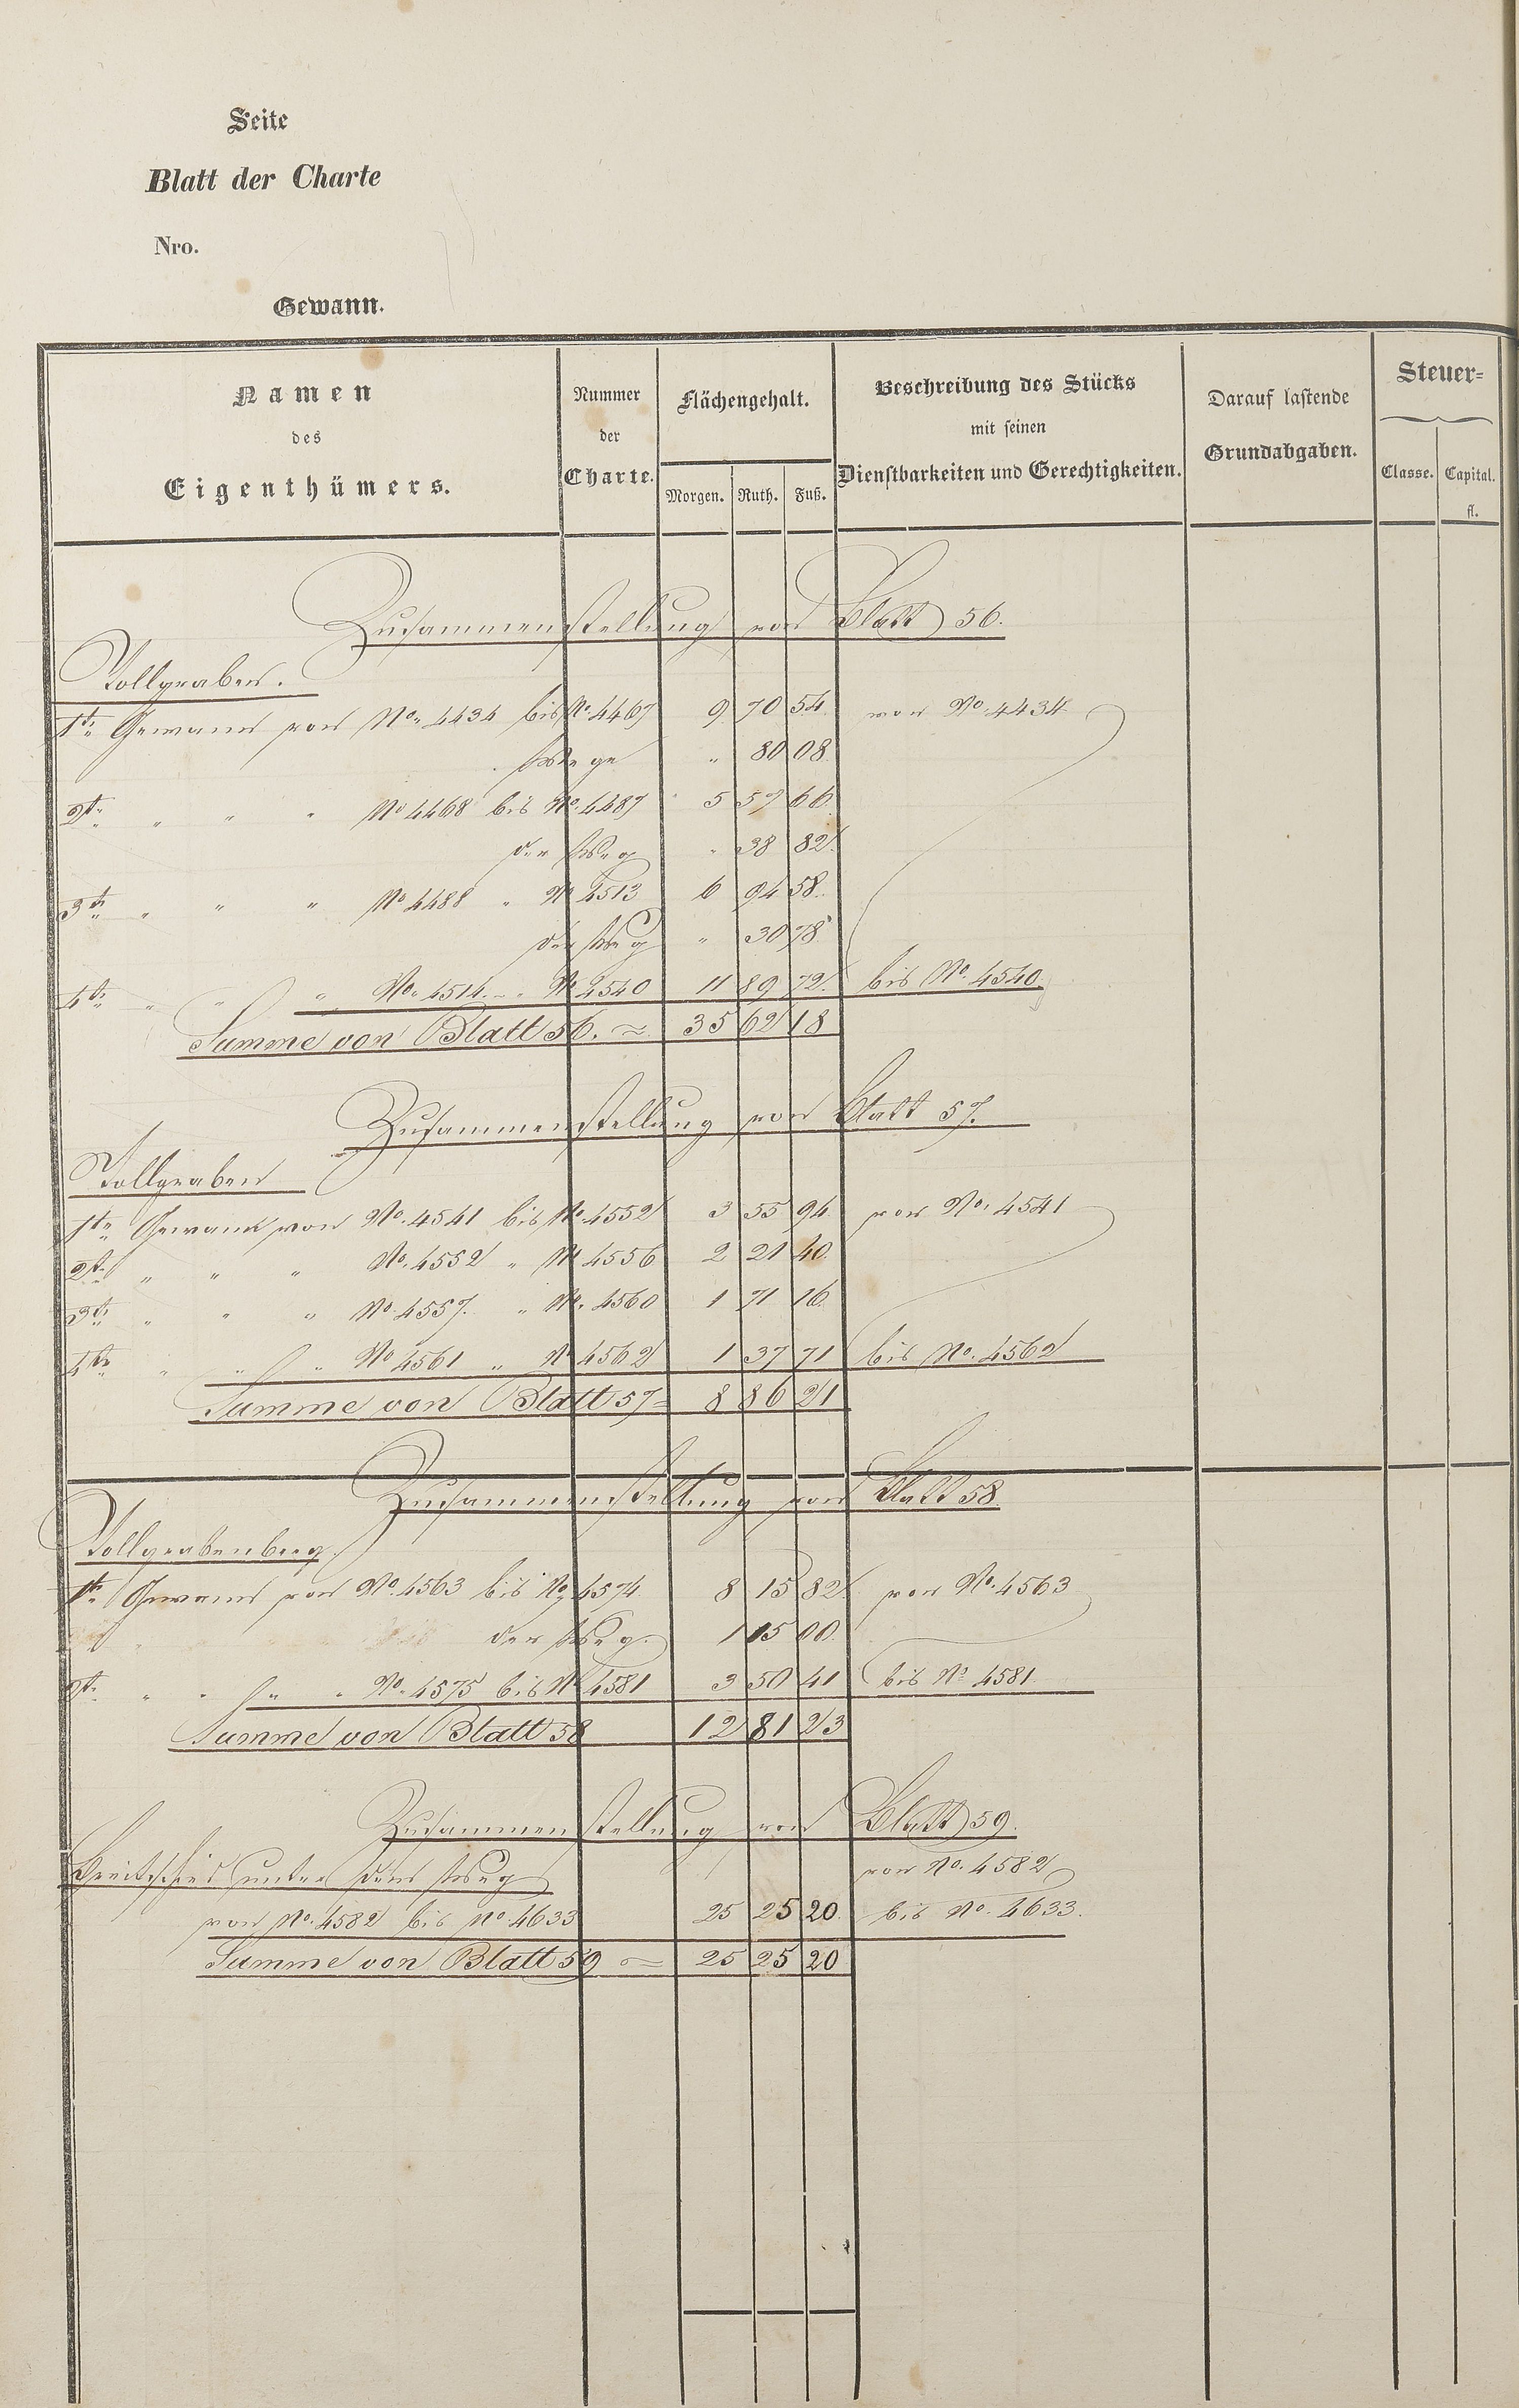 Seite
Blatt der Charte
Nro.
Gewann.
Namen des Eigenthümers.
Nummer der Charte.
Flächengehalt.
Morgen. Ruth. Fuß.
Beschreibung des Stücks mit seinen Dienstbarkeiten und Gerechtigkeiten.
Darauf lastende Grundabgaben.
Steuer=
Classe. Capital. fl.
Zusammenstellung von Blatt 56.
Tollgraben.
1te Gewann von No. 4434 bis No. 4467 9 70 54 von No. 4434
Wege " 80 08
2te " " " No 4468 bis No. 4487 5 57 66
der Weg " 38 82
3te " " " No 4488 " No 4513 6 94 58
der Weg " 30 78
4te " " " No. 4514. " No 4540 11 89 72 bis No. 4540
Summe von Blatt 56. = 35 62 18
Zusammenstellung von Blatt 57.
Tollgraben
1te Gewann von No. 4541 bis No. 4552 3 55 94 von No. 4541
2te " " " No. 4552 " No 4556 2 21 40
3te " " " No 4557. " No. 4560 1 71 16
4te " " " No 4561 " No 4562 1 37 71 bis No. 4562
Summe von Blatt 57 = 8 86 21
Zusammenstellung von Blatt 58
Tollgrabenberg
1te Gewann von No. 4563 bis No 4574 8 15 82 von No. 4563
der Weg. 1 15 00
2te " " " No. 4575 bis No 4581 3 50 41 bis No 4581
Summe von Blatt 58 12 81 23
Zusammenstellung von Blatt 59.
unter dem Weg von No. 4582
von No. 4582 bis No 4633 25 25 20 bis No. 4633.
Summe von Blatt 59 = 25 25 20